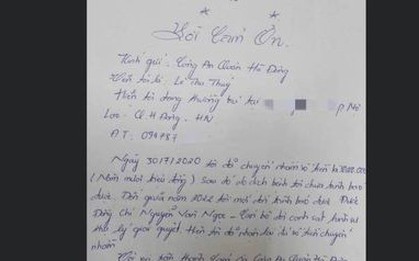 * *
Lời Cảm Ơn.
Kính gửi: Công An Quận Hà Đông
Tên tôi là: Lê Thu Thuỷ
Hiện tôi đang thường trú tại p. Mỗ
Lao Q. H Đông - HN
ĐT: 094787
Ngày 30/7/2020 tôi đã chuyển nhầm số tiền là
(Năm mươi triệu đồng) sau đó do dịch bệnh tôi chưa trình báo
được. Đến giữa năm 2022 tôi mới đi trình báo được. Được
Đồng chí Nguyễn Văn Ngọc - Cán bộ đội cảnh sát hình sự
thụ lý giải quyết. Hiện tôi đã nhận lại đủ số tiền chuyển
nhầm